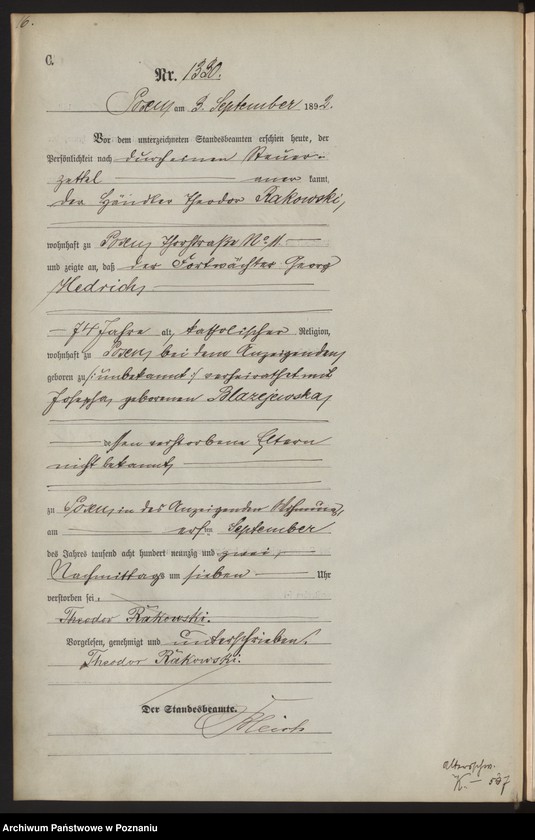 6.
C.
Nr. 1330.
Posen, am 3. September 1892.
Vor dem unterzeichneten Standesbeamten erschien heute, der
Persönlichkeit nach durch einen Steuer-
zettel aner kannt,
der Händler Theodor Rakowski,
wohnhaft zu Posen, Thorstraße No. 11
und zeigte an, daß der Fortwächter Georg
Hedrich,
74 Jahre alt, katholischer Religion,
wohnhaft zu Posen, bei dem Anzeigenden,
geboren zu /: unbekannt :/ verheirathet mit
Josepha, geborenen Blazejewska,
dessen verstorbene Eltern
nicht bekannt,
zu Posen, in des Anzeigenden Wohnung,
am ersten September
des Jahres tausend acht hundert neunzig und zwei,
Nachmittags um sieben Uhr
verstorben sei.
Theodor Räkowski.
Vorgelesen, genehmigt und unterschrieben.
Theodor Räkowski.
Der Standesbeamte.
Altersschw.
K.
Archiwum Państwowe w Poznaniu